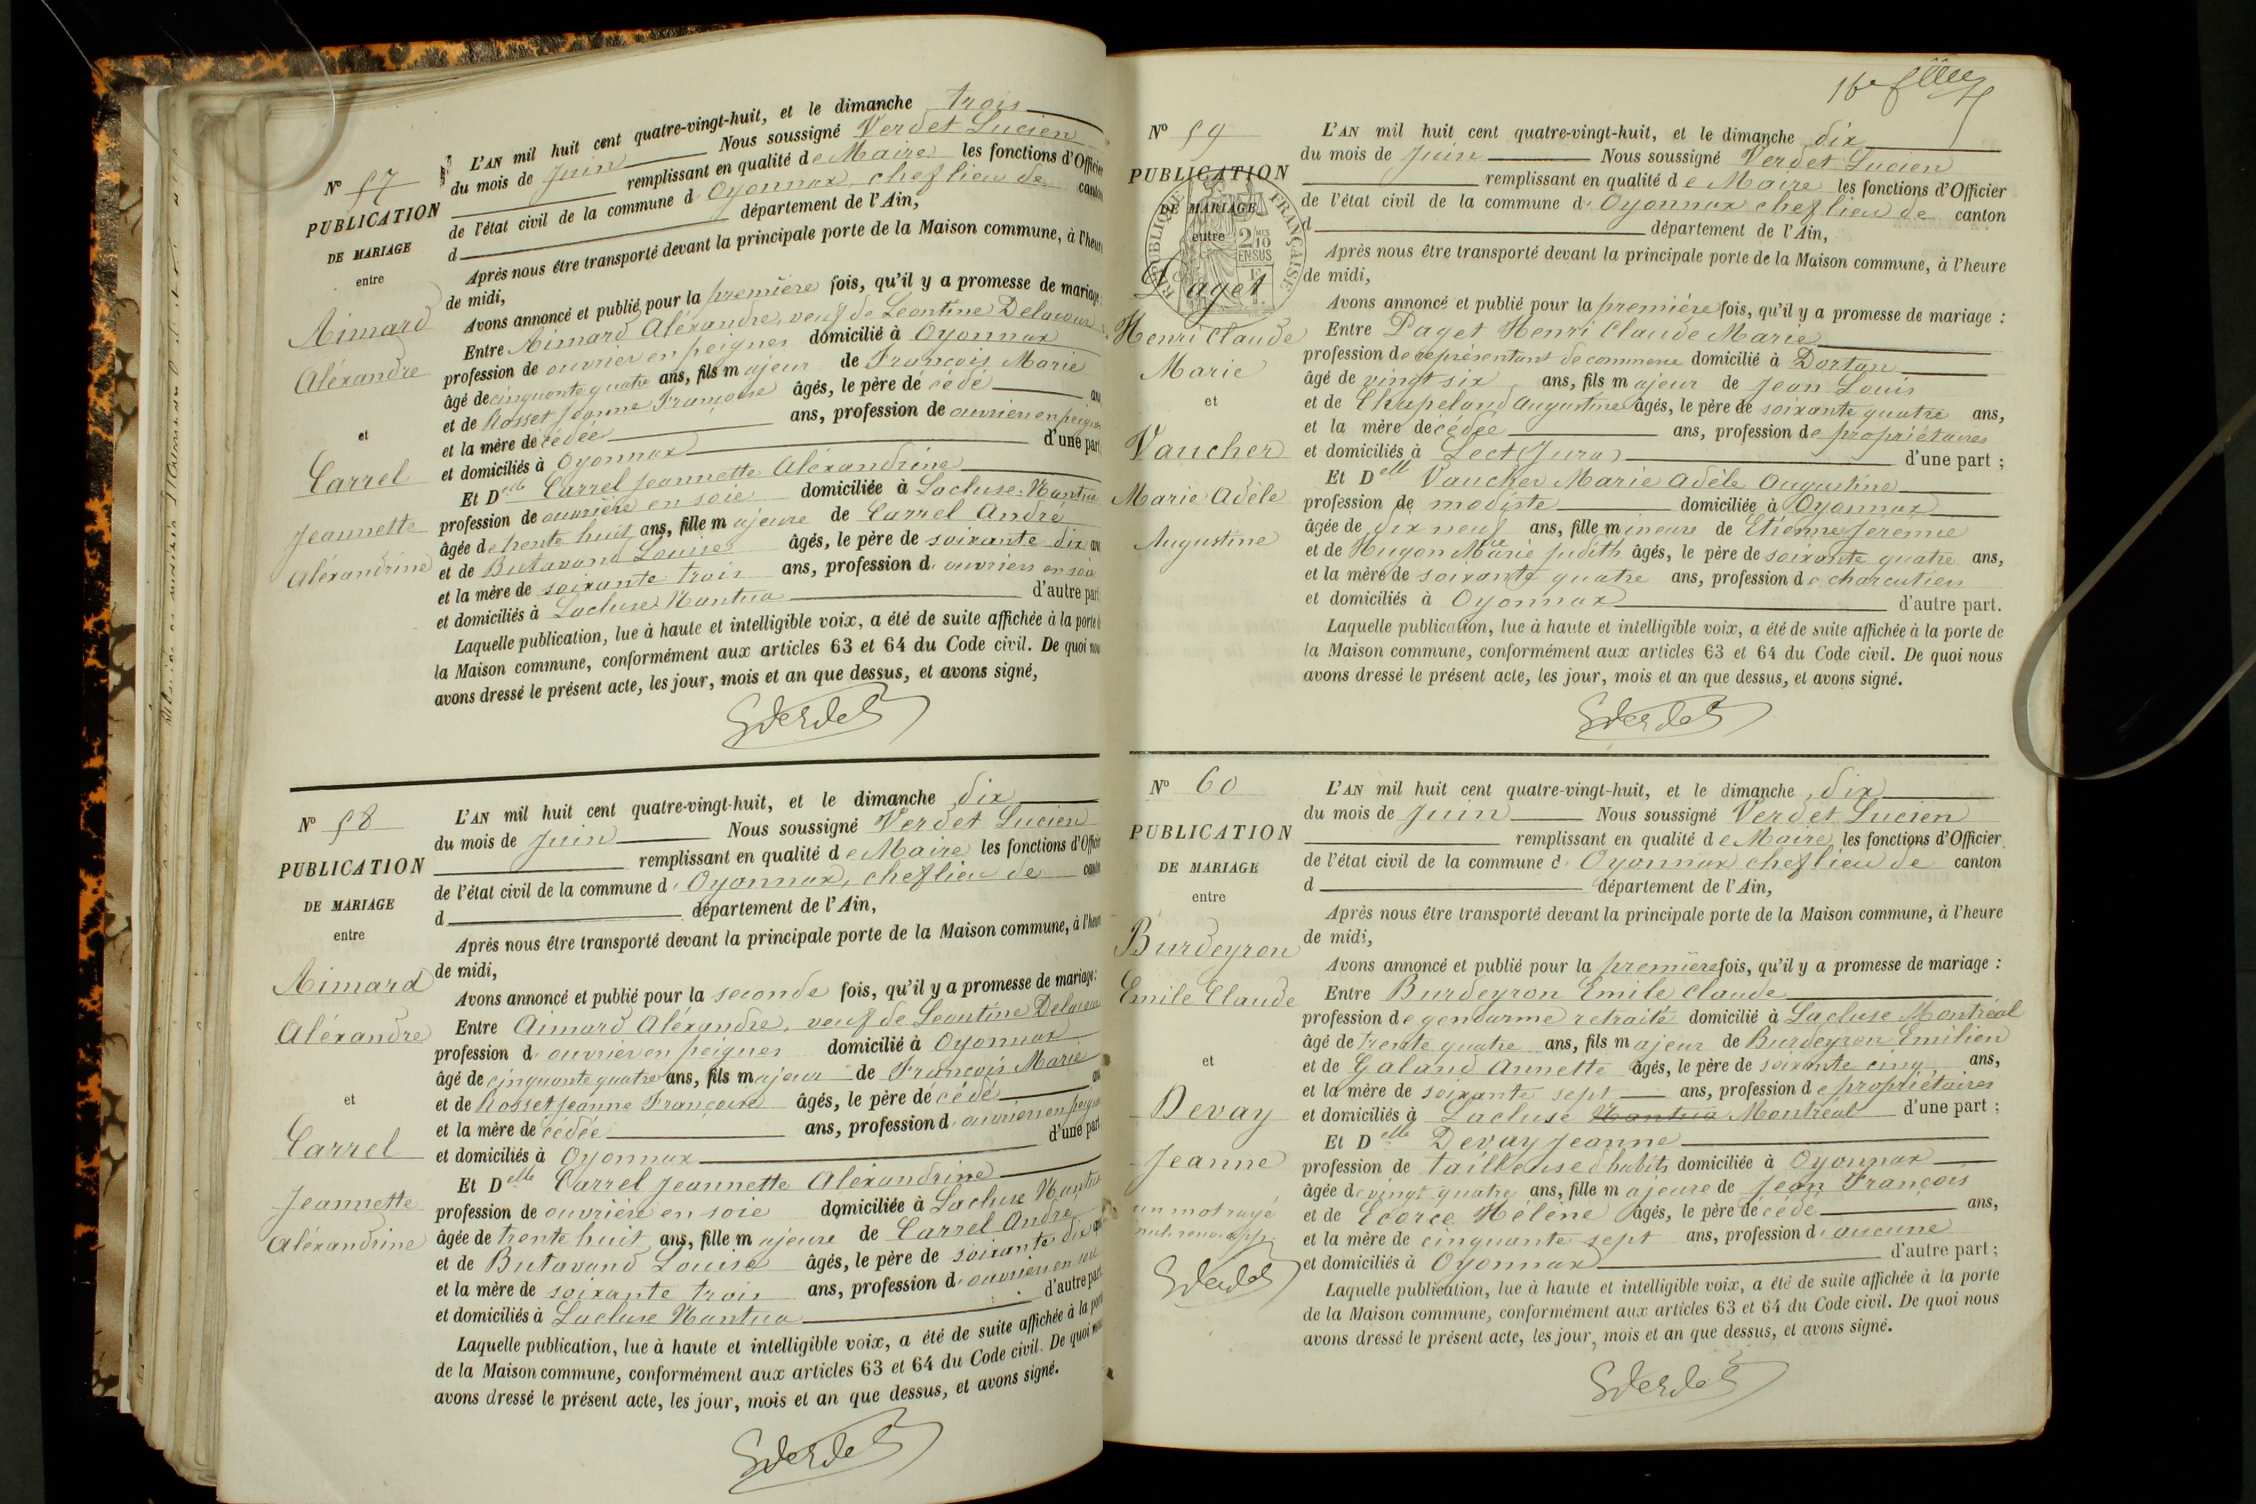 Nº 57
PUBLICATION
DE MARIAGE
entre
Aimard
Aléxandre
et
Carrel
Jeannette
Aléxandrine
L'AN mil huit cent quatre-vingt-huit, et le dimanche trois
du mois de Juin Nous soussigné Verdet Lucien
remplissant en qualité de Maire les fonctions d'Officier
de l'état civil de la commune d' Oyonnax, chef lieu de canton
d département de l'Ain,
Après nous être transporté devant la principale porte de la Maison commune, à l'heure
de midi,
Avons annoncé et publié pour la première fois, qu'il y a promesse de mariage:
Entre Aimard Aléxandre, veuf de Léontine
profession de ouvrier en peignes domicilié à Oyonnax
âgé de cinquante quatre ans, fils majeur de François Marie
et de Rosset Jeanne Françoise âgés, le père décédé
et la mère decédée ans, profession de ouvriers en peignes
et domiciliés à Oyonnax d'une part
Et Delle Carrel Jeannette Aléxandrine
profession de ouvrière en soie domiciliée à Lacluse. Nantua
âgée de trente huit ans, fille majeure de Carrel André
et de Butavand Louise âgés, le père de soixante dix
et la mère de soixante trois ans, profession d' ouvriers en soie
et domiciliés à Lacluse Nantua d'autre part
Laquelle publication, lue à haute et intelligible voix, a été de suite affichée à la porte
la Maison commune, conformément aux articles 63 et 64 du Code civil. De quoi nous
avons dressé le présent acte, les jour, mois et an que dessus, et avons signé,
Nº 58
PUBLICATION
DE MARIAGE
entre
Aimard
Aléxandre
et
Carrel
Jeannette
Aléxandrine
L'AN mil huit cent quatre-vingt-huit, et le dimanche dix
du mois de Juin Nous soussigné Verdet Lucien
remplissant en qualité de Maire les fonctions d'Officier
de l'état civil de la commune d' Oyonnax, chef lieu de canton
d département de l'Ain,
Après nous être transporté devant la principale porte de la Maison commune, à l'heure
de midi,
Avons annoncé et publié pour la seconde fois, qu'il y a promesse de mariage:
Entre Aimard Aléxandre, veuf de Léontine
profession d' ouvrier en peignes domicilié à Oyonnax
âgé de cinquante quatre ans, fils majeur de François Marie
et de Rosset Jeanne Françoise âgés, le père décédé
et la mère decédée ans, profession d' ouvriers en peignes
et domiciliés à Oyonnax d'une part
Et Delle Carrel Jeannette Aléxandrine
profession de ouvrière en soie domiciliée à Lacluse Nantua
âgée de trente huit ans, fille majeure de Carrel André
et de Butavand Louise âgés, le père de soixante dix
et la mère de soixante trois ans, profession d' ouvriers en soie
et domiciliés à Lacluse Nantua d'autre part
Laquelle publication, lue à haute et intelligible voix, a été de suite affichée à la porte
de la Maison commune, conformément aux articles 63 et 64 du Code civil. De quoi nous
avons dressé le présent acte, les jour, mois et an que dessus, et avons signé.
Nº 59
PUBLICATION
DE MARIAGE
entre
RÉPUBLIQUE FRANÇAISE
2/10 EN SUS
Paget
Henri Claude
Marie
et
Vaucher
Marie Adèle
Augustine
L'AN mil huit cent quatre-vingt-huit, et le dimanche dix
du mois de Juin Nous soussigné Verdet Lucien
remplissant en qualité de Maire les fonctions d'Officier
de l'état civil de la commune d' Oyonnax chef lieu de canton
d département de l'Ain,
Après nous être transporté devant la principale porte de la Maison commune, à l'heure
de midi,
Avons annoncé et publié pour la première fois, qu'il y a promesse de mariage :
Entre Paget Henri Claude Marie
profession de représentant de commerce domicilié à Dortan
âgé de vingt six ans, fils majeur de Jean Louis
et de Chapeland Augustine âgés, le père de soixante quatre ans,
et la mère decédée ans, profession de propriétaires
et domiciliés à Lect (Jura) d'une part ;
Et Delle Vaucher Marie Adèle Augustine
profession de modiste domiciliée à Oyonnax
âgée de dix neuf ans, fille mineure de Etienne Jérémie
et de Hugon Marie Judith âgés, le père de soixante quatre ans,
et la mère de soixante quatre ans, profession de charcutiers
et domiciliés à Oyonnax d'autre part.
Laquelle publication, lue à haute et intelligible voix, a été de suite affichée à la porte de
la Maison commune, conformément aux articles 63 et 64 du Code civil. De quoi nous
avons dressé le présent acte, les jour, mois et an que dessus, et avons signé.
Nº 60
PUBLICATION
DE MARIAGE
entre
Burdeyron
Emile Claude
et
Devay
Jeanne
un mot rayé
L'AN mil huit cent quatre-vingt-huit, et le dimanche dix
du mois de Juin Nous soussigné Verdet Lucien
remplissant en qualité de Maire les fonctions d'Officier
de l'état civil de la commune d' Oyonnax chef lieu de canton
d département de l'Ain,
Après nous être transporté devant la principale porte de la Maison commune, à l'heure
de midi,
Avons annoncé et publié pour la première fois, qu'il y a promesse de mariage :
Entre Burdeyron Emile Claude
profession de gendarme retraité domicilié à Lacluse Montréal
âgé de trente quatre ans, fils majeur de Burdeyron Emilien
et de Galand Annette âgés, le père de soixante cinq ans,
et la mère de soixante sept ans, profession de propriétaires
et domiciliés à Lacluse Nantua Montréal d'une part ;
Et Delle Devay Jeanne
profession de tailleuse d'habits domiciliée à Oyonnax
âgée de vingt quatre ans, fille majeure de Jean François
et de Ecorce Hélène âgés, le père décédé ans,
et la mère de cinquante sept ans, profession d' aucune
et domiciliés à Oyonnax d'autre part ;
Laquelle publication, lue à haute et intelligible voix, a été de suite affichée à la porte
de la Maison commune, conformément aux articles 63 et 64 du Code civil. De quoi nous
avons dressé le présent acte, les jour, mois et an que dessus, et avons signé.